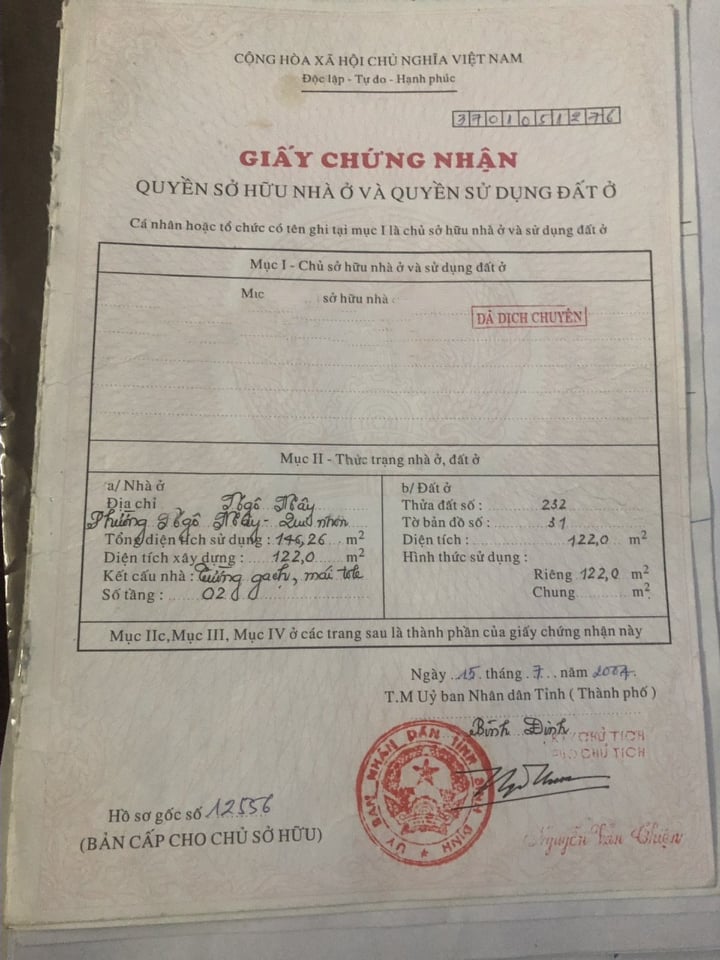 CỘNG HÒA XÃ HỘI CHỦ NGHĨA VIỆT NAM
Độc lập - Tự do - Hạnh phúc
3701051276
GIẤY CHỨNG NHẬN
QUYỀN SỞ HỮU NHÀ Ở VÀ QUYỀN SỬ DỤNG ĐẤT Ở
Cá nhân hoặc tổ chức có tên ghi tại mục I là chủ sở hữu nhà ở và sử dụng đất ở
Mục I - Chủ sở hữu nhà ở và sử dụng đất ở
sở hữu nhà
ĐÃ DỊCH CHUYỂN
Mục II - Thực trạng nhà ở, đất ở
a/ Nhà ở
Địa chỉ Ngô Mây
Phường Ngô Mây - Quy nhơn
Tổng diện tích sử dụng : 146,26 m2
Diện tích xây dựng : 122,0 m2
Kết cấu nhà : Tường gạch, mái tole
Số tầng : 02
b/ Đất ở
Thửa đất số : 232
Tờ bản đồ số : 31
Diện tích : 122,0 m2
Hình thức sử dụng :
Riêng 122,0 m2
Chung m2
Mục IIc, Mục III, Mục IV ở các trang sau là thành phần của giấy chứng nhận này
Ngày 15 tháng 7 năm 2004
T.M Uỷ ban Nhân dân Tỉnh ( Thành phố )
Bình Định
CHỦ TỊCH
PHÓ CHỦ TỊCH
ỦY BAN NHÂN DÂN TỈNH BÌNH ĐỊNH
Nguyễn Văn Thiện
Hồ sơ gốc số 12556
(BẢN CẤP CHO CHỦ SỞ HỮU)